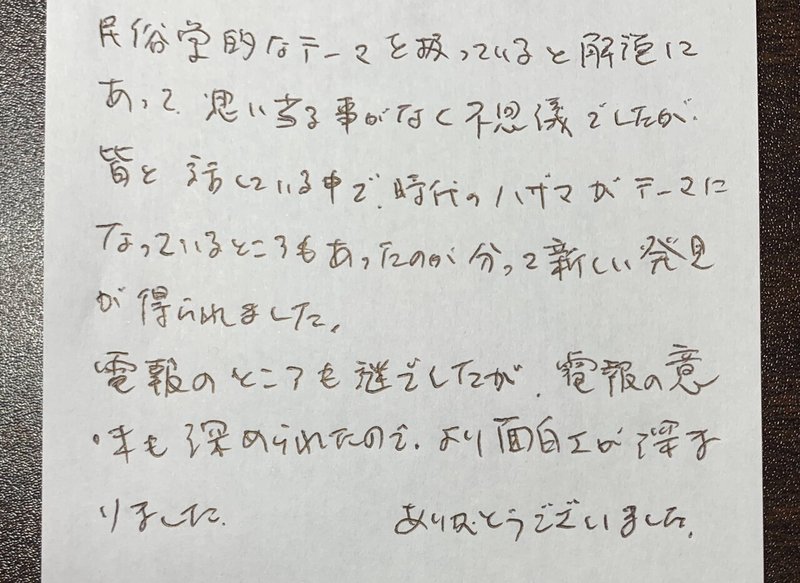 民俗学的なテーマを扱っていると解説に
あって、思い当る事がなく不思儀でしたが、
皆と話している中で、時代のハザマがテーマに
なっているところもあったのが分って新しい発見
が得られました。
電報のところも謎でしたが、電報の意
味も深められたので、より面白エが深ま
りました。 ありがとうございました。